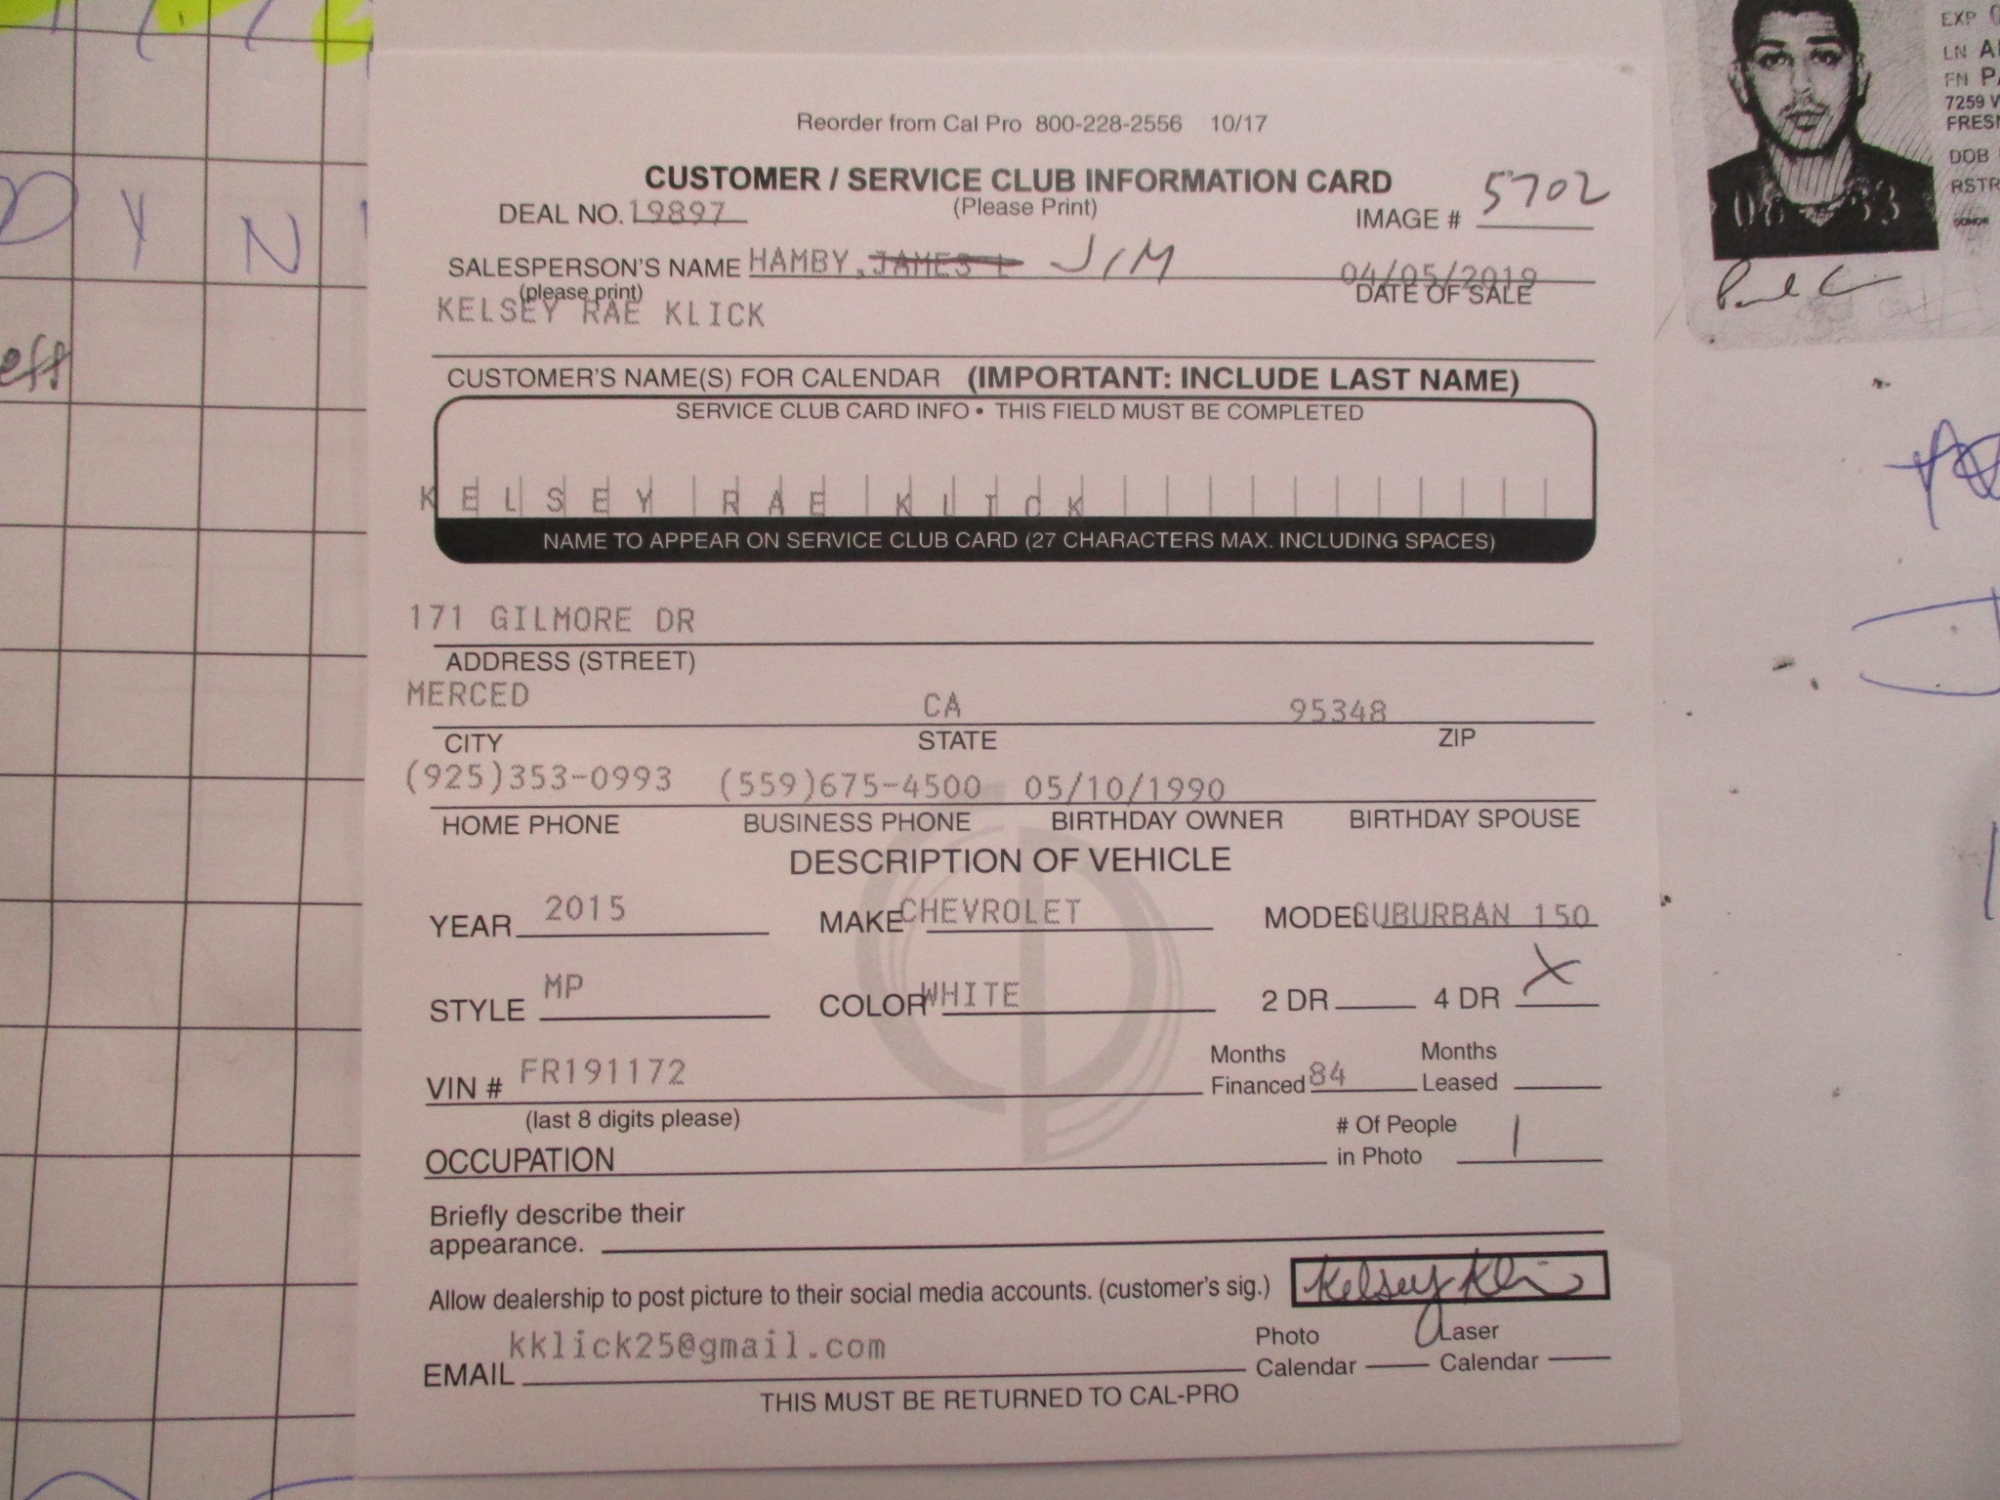 Reorder from Cal Pro 800-228-2556 10/17
CUSTOMER / SERVICE CLUB INFORMATION CARD
(Please Print)
DEAL NO. 19897
IMAGE # 5702
SALESPERSON'S NAME HAMBY, JAMES L JIM
(please print)
04/05/2019
DATE OF SALE
KELSEY RAE KLICK
CUSTOMER'S NAME(S) FOR CALENDAR (IMPORTANT: INCLUDE LAST NAME)
SERVICE CLUB CARD INFO • THIS FIELD MUST BE COMPLETED
KELSEY RAE KLICK
NAME TO APPEAR ON SERVICE CLUB CARD (27 CHARACTERS MAX. INCLUDING SPACES)
171 GILMORE DR
ADDRESS (STREET)
MERCED CA 95348
CITY STATE ZIP
(925)353-0993 (559)675-4500 05/10/1990
HOME PHONE BUSINESS PHONE BIRTHDAY OWNER BIRTHDAY SPOUSE
DESCRIPTION OF VEHICLE
YEAR 2015 MAKE CHEVROLET MODEL SUBURBAN 150
STYLE MP COLOR WHITE 2 DR 4 DR X
VIN # FR191172 Months Financed 84 Months Leased
(last 8 digits please)
OCCUPATION # Of People in Photo 1
Briefly describe their
appearance.
Allow dealership to post picture to their social media accounts. (customer's sig.) Kelsey Klick
EMAIL kklick25@gmail.com Photo Calendar Laser Calendar
THIS MUST BE RETURNED TO CAL-PRO
EXP
LN
FN
7259
FRES
DOB
RSTR
DONOR
eff
Y N